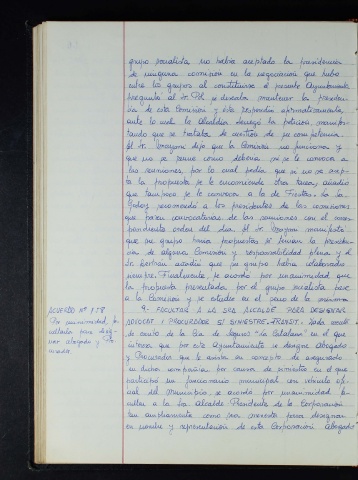 grupo socialista no había aceptado la presidencia
de ninguna comisión en la negociación que hubo
entre los grupos al constituirse el presente Ayuntamiento
pregunta al Sr. si deseaba mantener la presiden-
cia de esta Comisión y éste respondió afirmativamente
ante lo cual la Alcaldía denegó la petición manifes-
tando que se trataba de asuntos de su competencia.
El Sr. dijo que la Comisión no funciona y
que no se reune como debiera, ni se le convoca a
las reuniones, por lo cual pedía que si no se acep-
ta la propuesta se le encomiende otra tarea, añadió
que tampoco se le convoca a la de Fiestas. La Sra.
recomendó a los presidentes de las comisiones
que pasen convocatorias de las reuniones con el corres-
pondiente orden del día. El Sr. manifestó
que su grupo haría propuestas si tuviera la presiden-
cia de alguna Comisión y responsabilidad plena y el
Sr. Beltran añadió que su grupo había colaborado
siempre. Finalmente, se acordó por unanimidad que
la propuesta presentada por el grupo socialista pase
a la Comisión y se estudie en el seno de la misma.
ACUERDO Nº 158
Por unanimidad, fa-
cultando para desig-
nar abogado y Pro-
curador.
9.- FACULTAR A LA SRA ALCALDE PARA DESIGNAR
ABOGADO Y PROCURADOR EN SINIESTRE TRANSIT. Dada cuenta
de carta de la Cia de Seguros "La Catalana" en el que
interesa que por este Ayuntamiento se designe Abogado
y Procurador que le asista en concepto de asegurado
en dicha compañía por causa de siniestro en el que
participó un funcionario municipal con vehículo ofi-
cial del Municipio, se acordó por unanimidad fa-
cultar a la Sra. Alcalde Presidente de la Corporación
tan ampliamente como sea menester para designar
en nombre y representación de esta Corporación Abogado